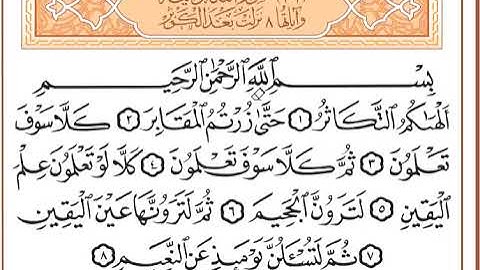 وآياتها ٨ نزلت بعد الكوثر
بِسْمِ ٱللَّهِ ٱلرَّحْمَٰنِ ٱلرَّحِيمِ
أَلْهَىٰكُمُ ٱلتَّكَاثُرُ ١ حَتَّىٰ زُرْتُمُ ٱلْمَقَابِرَ ٢ كَلَّا سَوْفَ
تَعْلَمُونَ ٣ ثُمَّ كَلَّا سَوْفَ تَعْلَمُونَ ٤ كَلَّا لَوْ تَعْلَمُونَ عِلْمَ
ٱلْيَقِينِ ٥ لَتَرَوُنَّ ٱلْجَحِيمَ ٦ ثُمَّ لَتَرَوُنَّهَا عَيْنَ ٱلْيَقِينِ
٧ ثُمَّ لَتُسْـَٔلُنَّ يَوْمَئِذٍ عَنِ ٱلنَّعِيمِ ٨